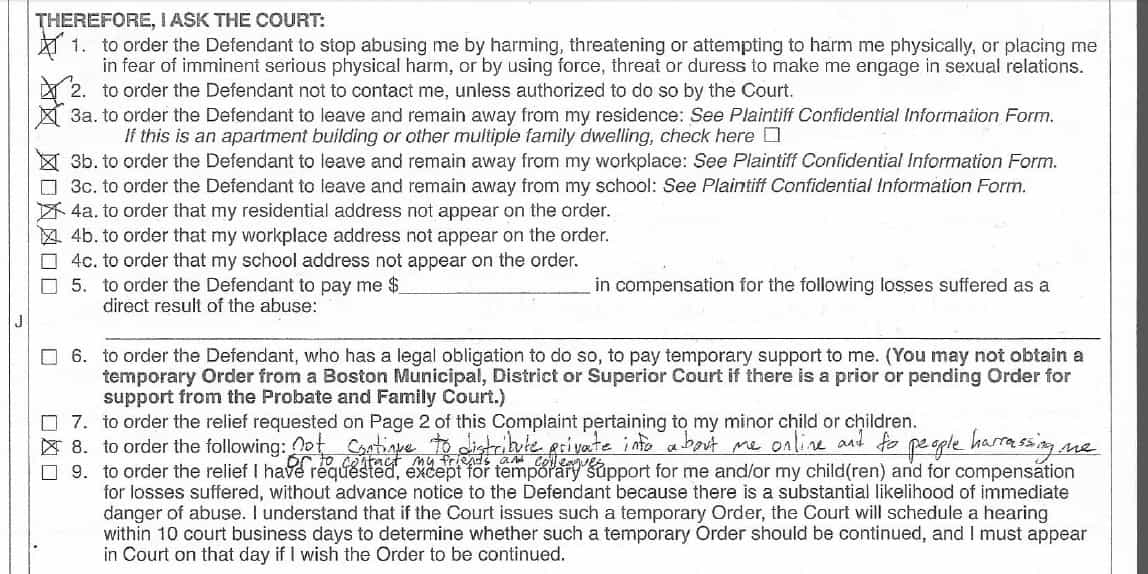 THEREFORE, I ASK THE COURT:
☒ 1. to order the Defendant to stop abusing me by harming, threatening or attempting to harm me physically, or placing me
in fear of imminent serious physical harm, or by using force, threat or duress to make me engage in sexual relations.
☒ 2. to order the Defendant not to contact me, unless authorized to do so by the Court.
☒ 3a. to order the Defendant to leave and remain away from my residence: See Plaintiff Confidential Information Form.
If this is an apartment building or other multiple family dwelling, check here ☐
☒ 3b. to order the Defendant to leave and remain away from my workplace: See Plaintiff Confidential Information Form.
☐ 3c. to order the Defendant to leave and remain away from my school: See Plaintiff Confidential Information Form.
☒ 4a. to order that my residential address not appear on the order.
☒ 4b. to order that my workplace address not appear on the order.
☐ 4c. to order that my school address not appear on the order.
☐ 5. to order the Defendant to pay me $____________________ in compensation for the following losses suffered as a
direct result of the abuse:
J
☐ 6. to order the Defendant, who has a legal obligation to do so, to pay temporary support to me. (You may not obtain a
temporary Order from a Boston Municipal, District or Superior Court if there is a prior or pending Order for
support from the Probate and Family Court.)
☐ 7. to order the relief requested on Page 2 of this Complaint pertaining to my minor child or children.
☒ 8. to order the following: Not Continue to distribute private info about me online and to people harrassing me
or to contact my friends and colleagues
☐ 9. to order the relief I have requested, except for temporary support for me and/or my child(ren) and for compensation
for losses suffered, without advance notice to the Defendant because there is a substantial likelihood of immediate
danger of abuse. I understand that if the Court issues such a temporary Order, the Court will schedule a hearing
within 10 court business days to determine whether such a temporary Order should be continued, and I must appear
in Court on that day if I wish the Order to be continued.